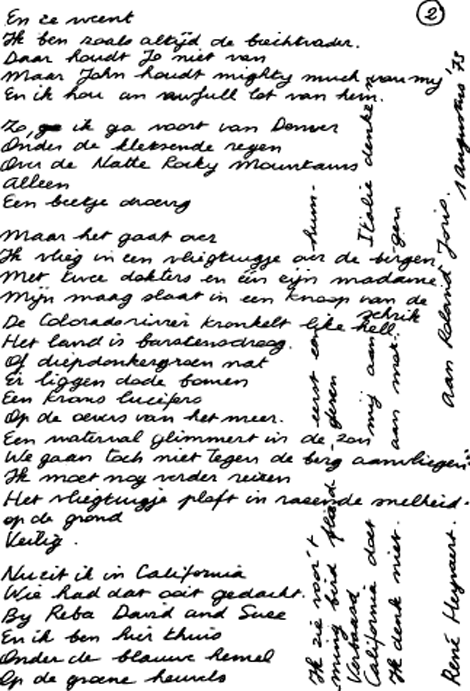 2
En ze weent
Ik ben zoals altijd de biechtvader.
Daar houdt Jo niet van
Maar John houdt mighty much van my
En ik hou an awfull lot van hem.
Zo, ik ga voort van Denver
Onder de kletsende regen
Over de Natte Rocky Mountains
Alleen
Een beetje droevig
Maar het gaat over
Ik vlieg in een vliegtuigje over de bergen
Met twee dokters en één zijn madame
Mijn maag slaat in een knoop van de
schrik
De Coloradorivier kronkelt like hell.
Het land is barstensdroog.
Of diepdonkergroen nat
Er liggen dode bomen
Een krans lucifers
Op de oevers van het meer.
Een waterval glimmert in de zon
We gaan toch niet tegen de berg aanvliegen?
Ik moet nog verder reizen
Het vliegtuigje ploft in razende snelheid
op de grond
Veilig.
Nu zit ik in California
Wie had dat ooit gedacht.
By Reba David and Suze
En ik ben hier thuis
Onder de blauwe hemel
Op de groene heuvels
Ik zie voor 't eerst een hum-
ming bird fluid
Verbaasd
California doet mij aan Italie denken
Ik denk niet aan met
René Heyvaert. aan Roland Joris. 1 augustus '73